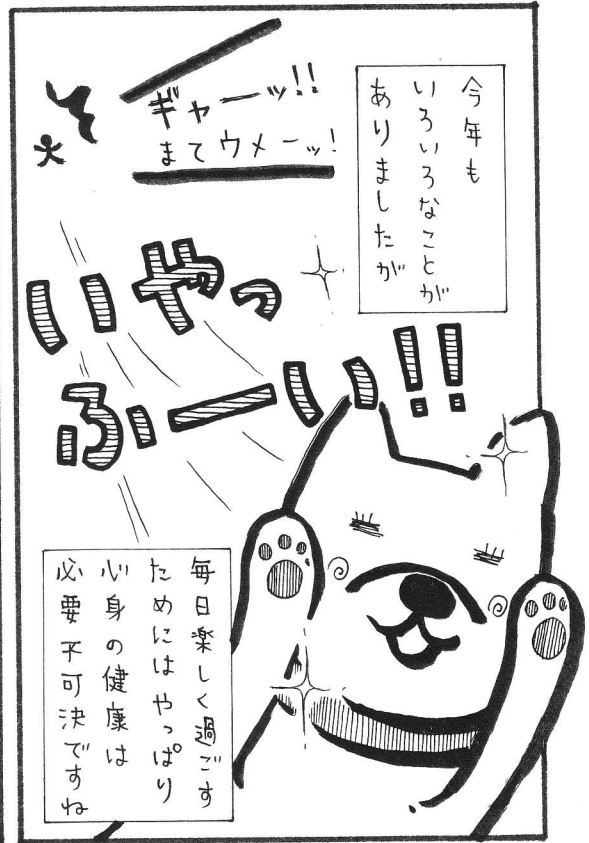 今年も
いろいろなことが
ありましたが
ギャーッ!!
まてウメーッ!
いやっ
ふーい!!
毎日楽しく過ごす
ためにはやっぱり
心身の健康は
必要不可決ですね